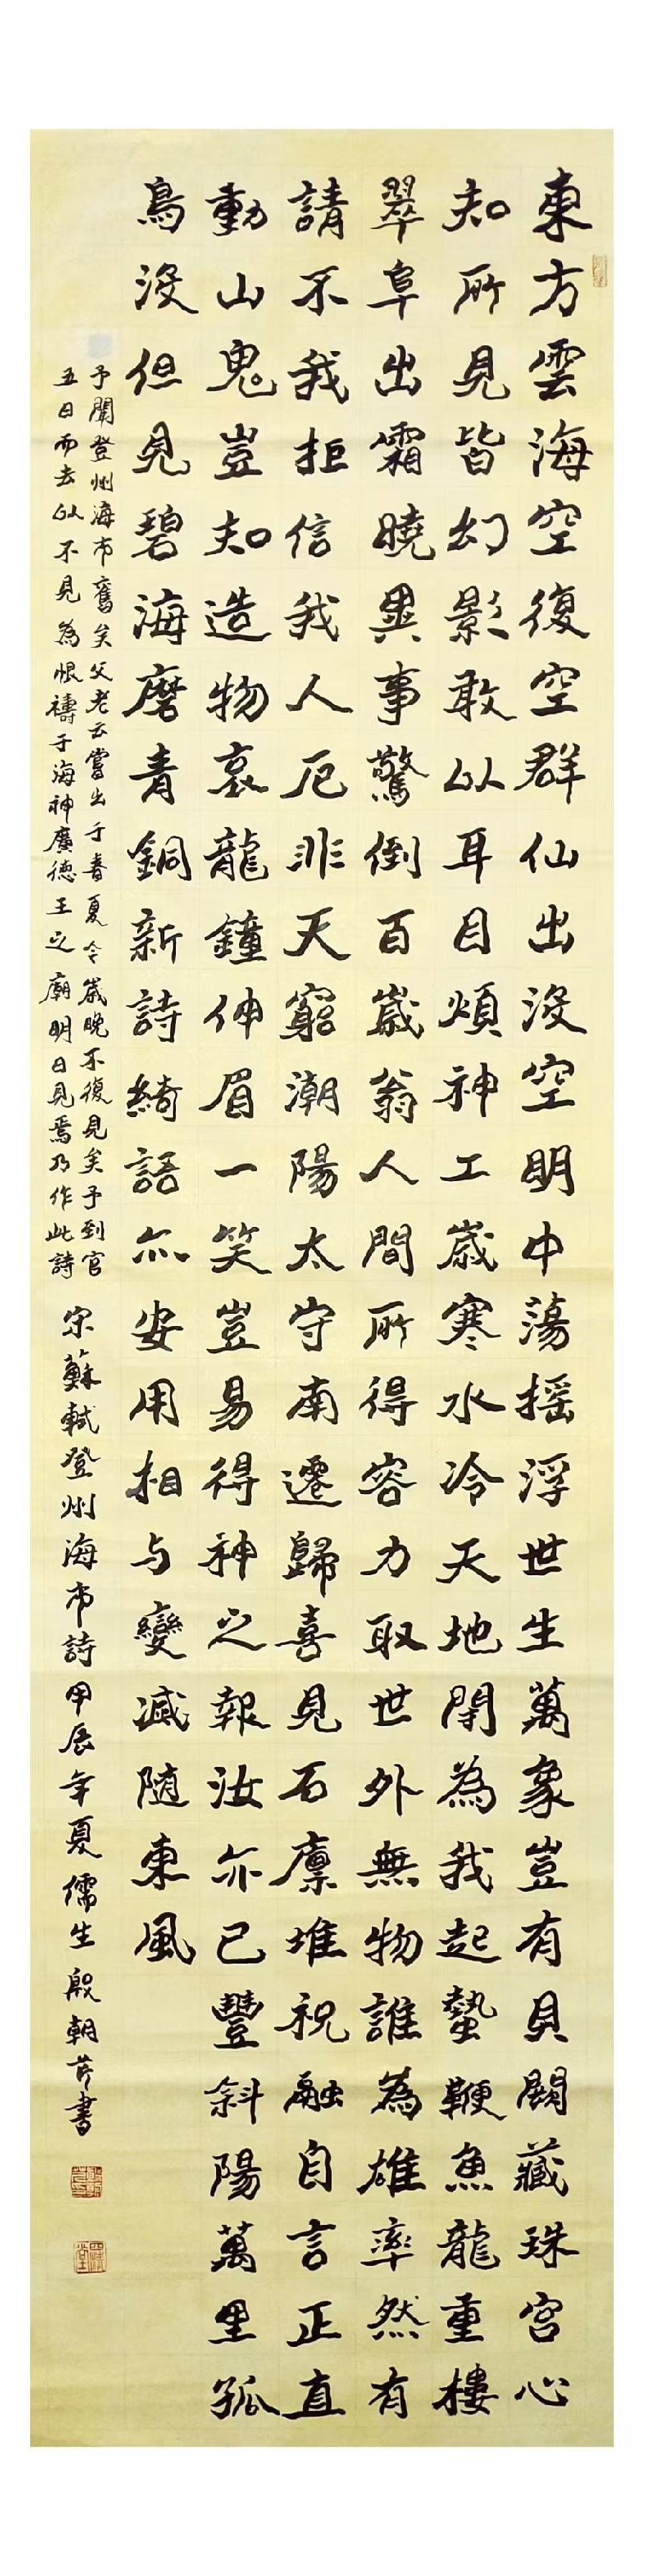 東方雲海空復空群仙出没空明中蕩摇浮世生萬象豈有貝闕藏珠宫心
知所見皆幻影敢以耳目煩神工歲寒水冷天地閉為我起蟄鞭魚龍重樓
翠阜出霜曉異事驚倒百歲翁人間所得容力取世外無物誰為雄率然有
請不我拒信我人厄非天窮潮陽太守南遷歸喜見石廪堆祝融自言正直
動山鬼豈知造物哀龍鐘伸眉一笑豈易得神之報汝亦已豐斜陽萬里孤
鳥没但見碧海磨青銅新詩綺語亦安用相与變滅隨東風
予聞登州海市舊矣父老云嘗出于春夏今歲晚不復見矣予到官
五日而去以不見為恨禱于海神廣德王之廟明日見焉乃作此詩
宋蘇軾登州海市詩甲辰年夏儒生殷朝芹書